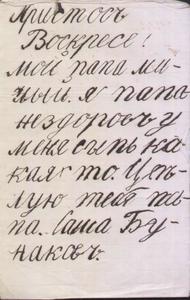 Христосъ
Воскресе!
мой папа ми-
лый. я папа
нездоровъ у
меня сыпь ка-
кая то. Цѣ-
лую тебя па-
па. Саша Бу-
наковъ.